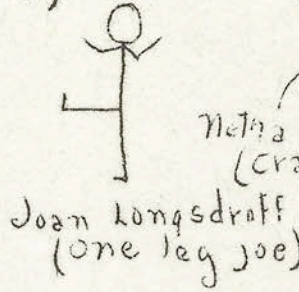 Netha
(Cra
Joan Longsdroff
(one leg joe)